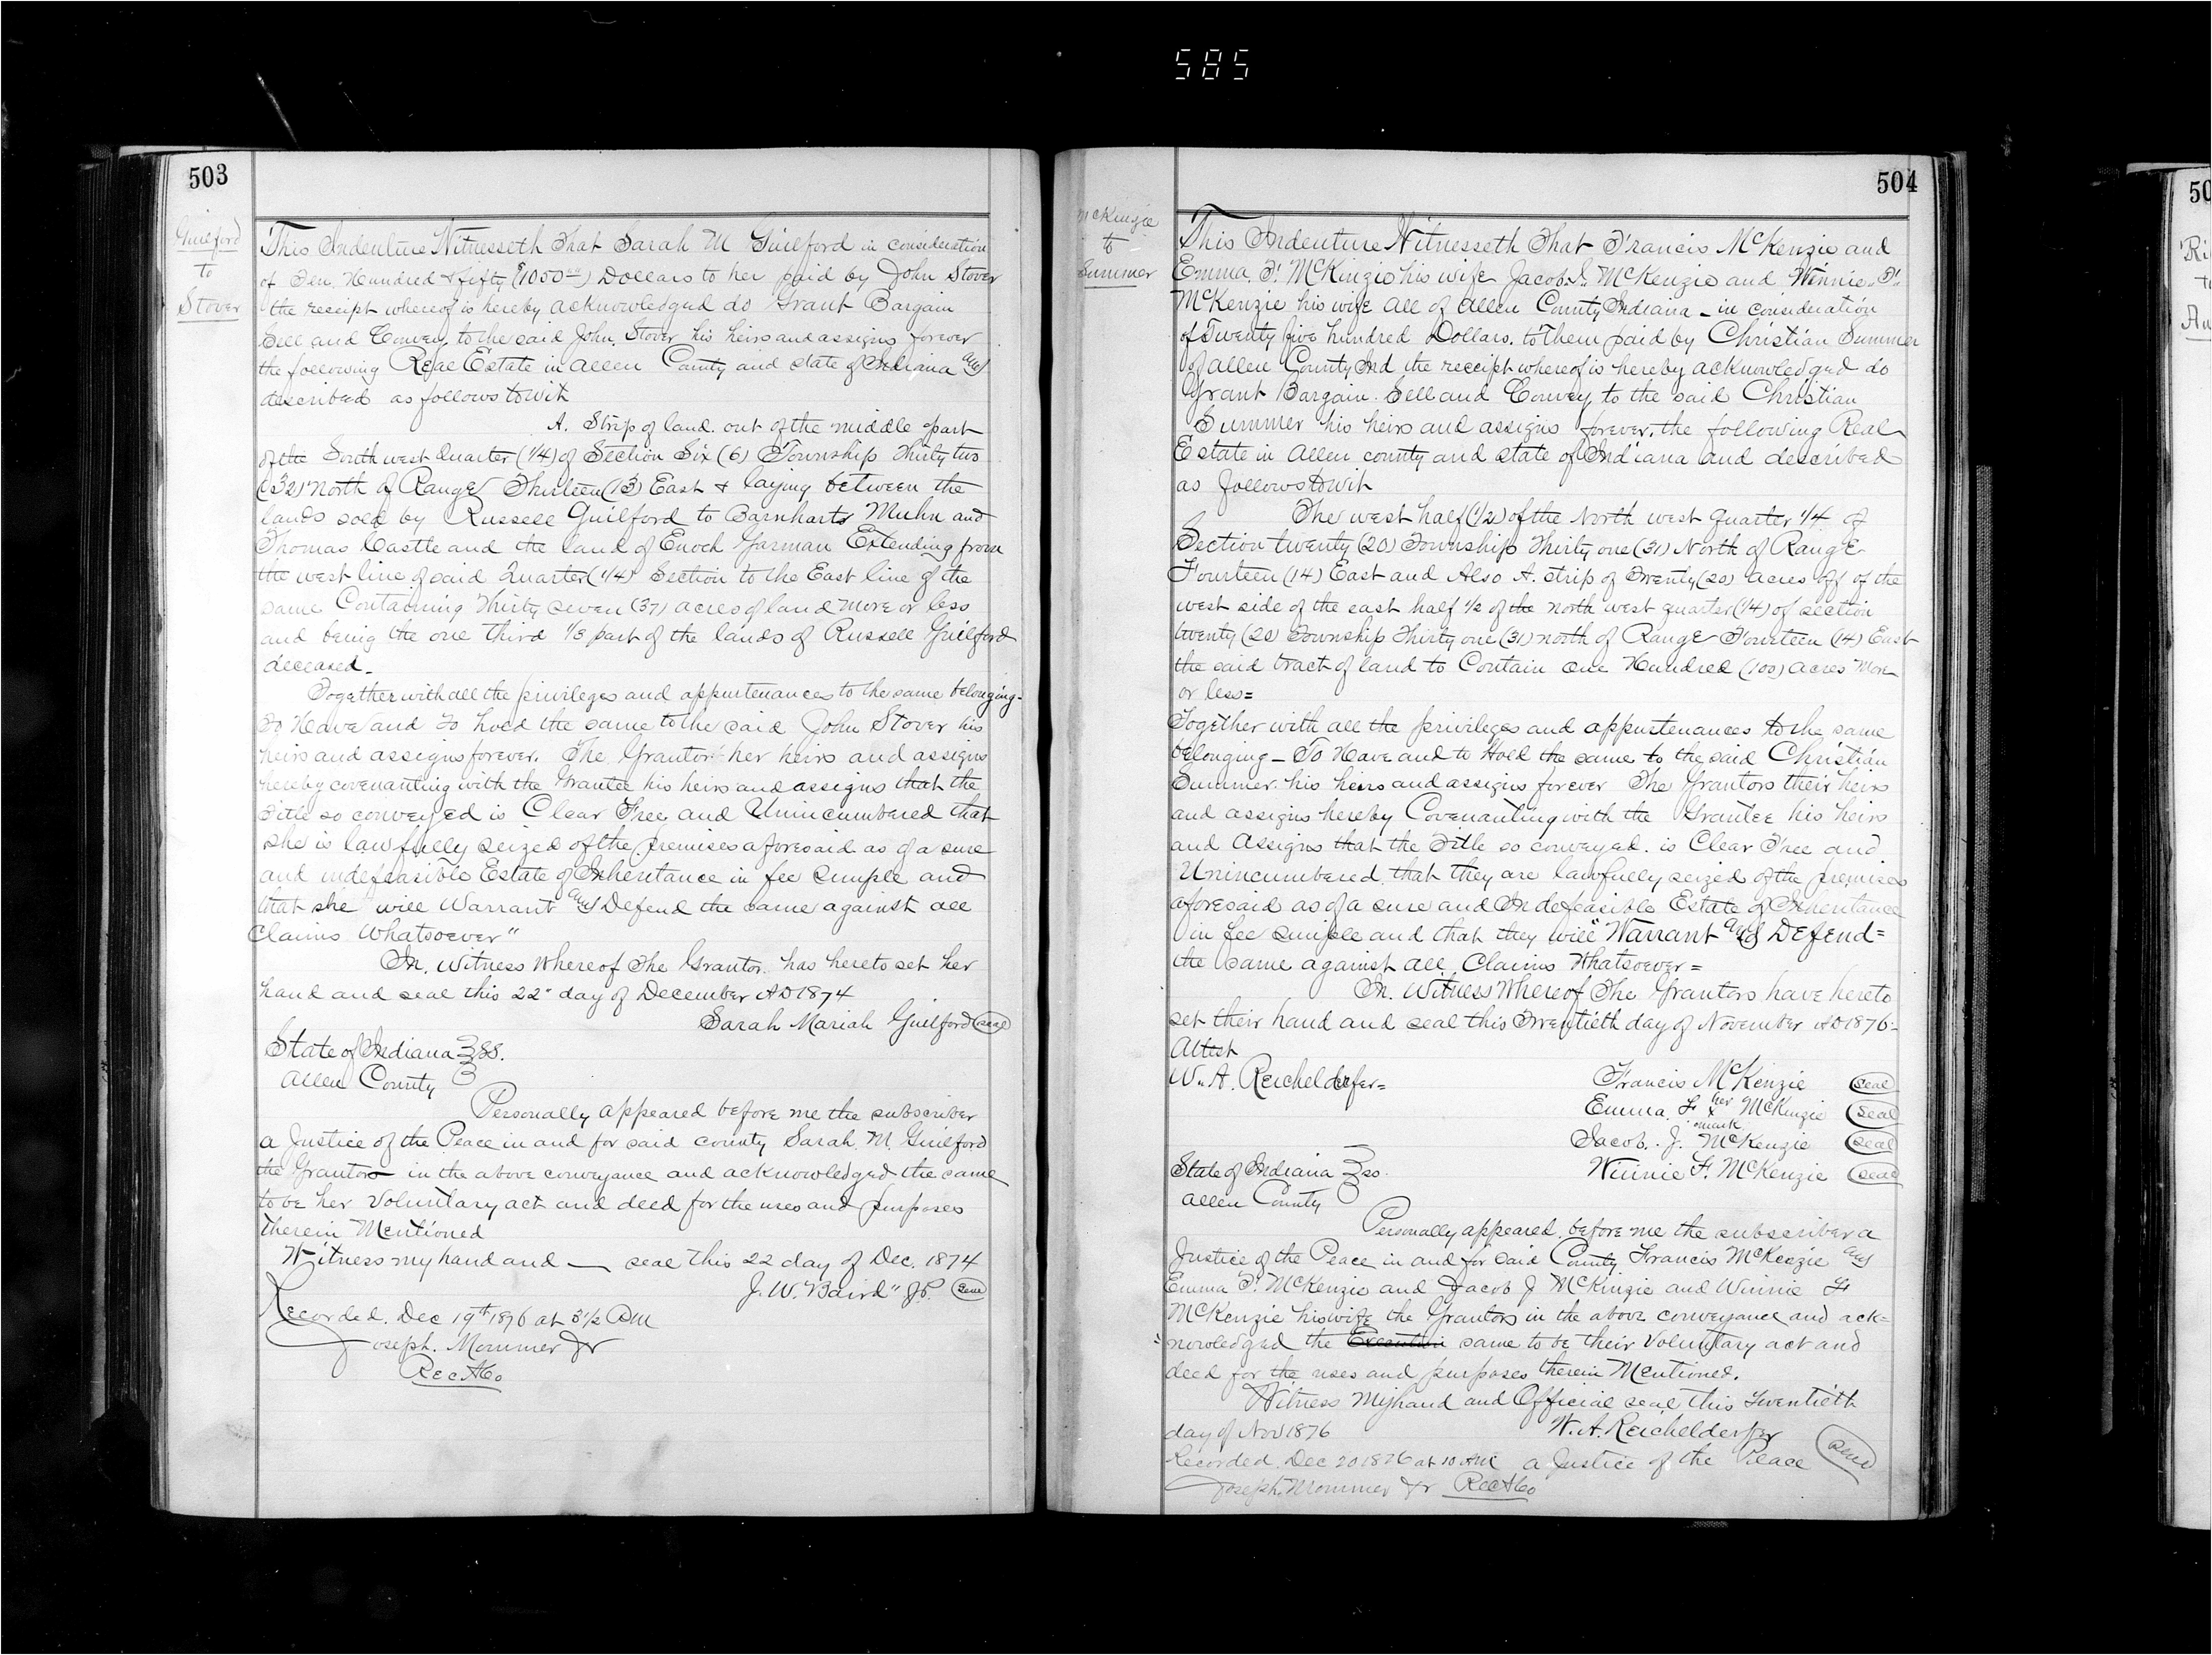 585
503
Guilford
to
Stover
This Indenture Witnesseth That Sarah M Guilford in consideration
of Ten Hundred & fifty ($1050.00) Dollars to her paid by John Stover
the receipt whereof is hereby acknowledged do Grant Bargain
Sell and Convey to the said John Stover his heirs and assigns forever
the following Real Estate in Allen County and state of Indiana and
described as follows towit
A. Strip of land out of the middle part
of the South west Quarter (1/4) of Section Six (6) Township Thirty two
(32) North of Range Thirteen (13) East & laying between the
lands sold by Russell Guilford to Barnharts Muhn and
Thomas Castle and the land of Enoch Garman Extending from
the west line of said Quarter (1/4) Section to the East line of the
same Containing Thirty seven (37) acres of land more or less
and being the one third 1/3 part of the lands of Russell Guilford
deceased_
Together with all the privileges and appurtenances to the same belonging-
To Have and to hold the same to the said John Stover his
heirs and assigns forever. The Grantor her heirs and assigns
hereby covenanting with the Grantee his heirs and assigns that the
Title so conveyed is Clear Free and Unincumbered that
she is lawfully seized of the premises aforesaid as of a sure
and indefeasible Estate of Inheritance in fee Simple and
that she will Warrant and Defend the same against all
Claims Whatsoever"
In. Witness Whereof The Grantor has hereto set her
hand and seal this 22" day of December AD 1874
Sarah Mariah Guilford seal
State of Indiana } SS.
Allen County }
Personally appeared before me the subscriber
a Justice of the Peace in and for said county Sarah. M. Guilford
the Grantor in the above conveyance and acknowledged the same
to be her Voluntary act and deed for the uses and purposes
therein Mentioned
Witness my hand and — seal this 22 day of Dec. 1874
J. W. Baird" J.P. Seal
Recorded. Dec 19th 1876 at 3 1/2 PM
Joseph. Mommer Jr
Rec A Co
504
McKinzie
to
Summer
This Indenture Witnesseth That Francis McKenzie and
Emma. F. McKinzie his wife Jacob. J. McKenzie and Winnie. F.
McKenzie his wife all of Allen County Indiana - in consideration
of Twenty five hundred Dollars. to Them paid by Christian Summer
of Allen County Ind the receipt whereof is hereby acknowledged do
Grant Bargain. Sell and Convey to the said Christian
Summer his heirs and assigns forever. the following Real
Estate in Allen county and state of Indiana and described
as follows towit
The west half (1/2) of the North west quarter 1/4 of
Section twenty (20) Township Thirty one (31) North of Range
Fourteen (14) East and Also A. strip of Twenty (20) acres off of the
west side of the east half 1/2 of the north west quarter (1/4) of section
twenty (20) Township Thirty one (31) north of Range Fourteen (14) East
the said tract of land to Contain one Hundred (100) acres More
or less=
Together with all the privileges and appurtenances to the same
belonging - To Have and to Hold the same to the said Christian
Summer. his heirs and assigns forever The Grantors their heirs
and assigns hereby Covenanting with the Grantee his heirs
and Assigns that the Title so conveyed. is Clear Free and
Unincumbered. that they are lawfully seized of the premises
aforesaid as of a sure and Indefeasible Estate of Inheritance
in fee simple and that they will "Warrant and Defend=
the same against all Claims Whatsoever=
In. Witness Whereof The Grantors have hereto
set their hand and seal this Twentieth day of November AD 1876-
Attest
W. A. Reichelderfer=
Francis McKenzie seal
Emma. F. her x mark McKinzie Seal
Jacob. J. McKenzie seal
Winnie F. McKenzie seal
State of Indiana } ss.
Allen County }
Personally appeared. before me the subscriber a
Justice of the Peace in and for said County Francis McKenzie and
Emma F. McKenzie and Jacob J McKinzie and Winnie F
McKenzie his wife the Grantors in the above conveyance and ack=
=nowledged the Execution same to be their Voluntary act and
deed for the uses and purposes therein Mentioned.
Witness My hand and Official seal this twentieth
day of Nov 1876 W. A. Reichelderfer
Recorded. Dec 20 1876 at 10 AM a Justice of the Peace Seal
Joseph. Mommer Jr Rec A Co
50